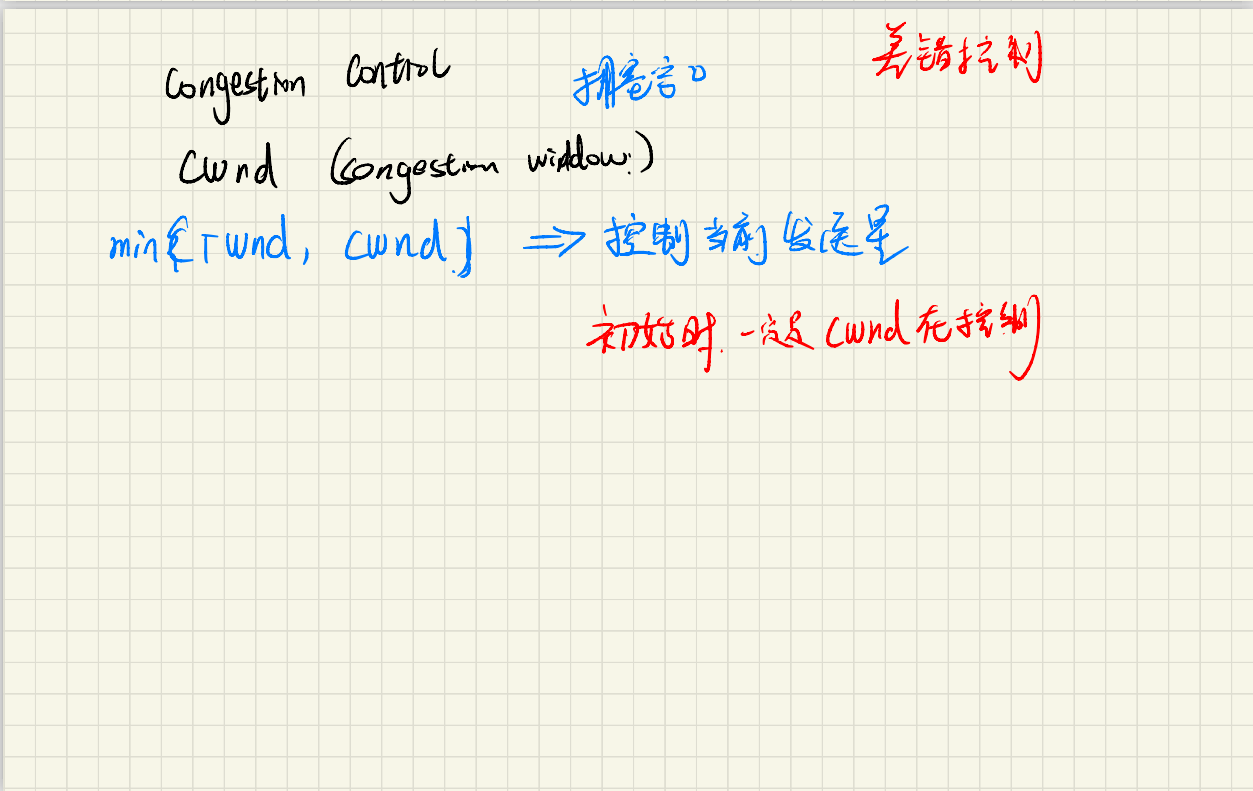 差错控制
Congestion Control 拥塞窗口
Cwnd (Congestion window)
min{rwnd, cwnd} => 控制当前发送量
初始时 一定是 cwnd 在控制